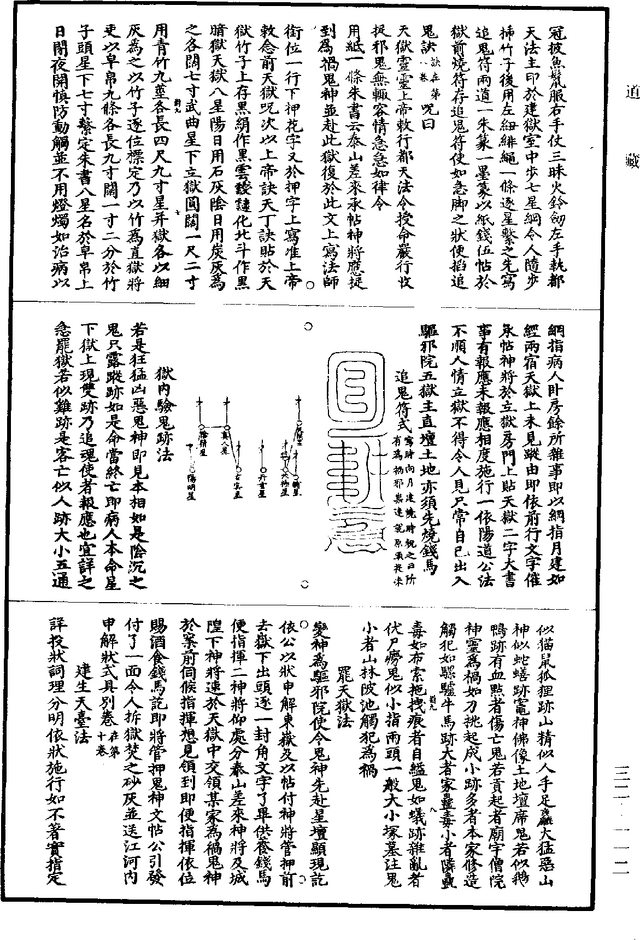 道藏
冠披魚鬣服右手仗三昧火鈴劒左手執都
天法主印於建獄室中步七星綱令人隨步
挿竹子後用左紐緋繩一條逐星繫之先寫
追鬼符兩道一朱篆一墨篆以紙錢伍帖於
獄前燒符存追鬼符使如急脚之狀便掐追
鬼訣訣在第八卷呪曰
天獄靈靈上帝敕行都天法令授命嚴行收
捉邪鬼無輙容情急急如律令
用紙一條朱書云泰山差來承帖神將應捉
到為禍鬼神並赴此獄復於此文上寫法師
銜位一行下押花字又於押字上寫准上帝
敕念前天獄呪次以上帝訣天丁訣貼於天
獄竹子上存黑絹作黑雲靉靆化北斗作黑
暗獄天獄八星陽日用石灰隂日用炭灰為
之各闊七寸武曲星下立獄圓闊一尺二寸
用青竹九莖各長四尺九寸星并獄各以細
灰為之以竹子逐位標定乃以竹為直獄將
吏以皁帛九條各長九寸闊一寸二分於竹
子頭星下七寸繫定朱書八星名於皁帛上
日閉夜開慎防動觸並不用燈燭如治病以
綱指病人卧房餘所雜事即以綱指月建如
經兩宿天獄上未見蹤由即依前行文字催
承帖神將於立獄房門上貼天獄二字大書
事有報應未報應相度施行一依陽道公法
不順人情立獄不得令人見尺常自已出入
驅邪院五獄主直壇土地亦須先燒錢馬
追鬼符式
獄内驗鬼跡法
若是狂猛凶惡鬼神即見本相如是隂沉之
鬼只露蹤跡如是命當終亡即病人本命星
下獄上現雙跡乃追魂使者報應也宜詳之
急罷獄若似雞跡是客亡似人跡大小五通
似猫鼠狐狸跡山精似人手足麤大猛惡山
神似蛇蟮跡竈神佛像土地壇席鬼若似鵝
鴨跡有血㸃者傷亡鬼若貢起者廟宇僧院
神靈為禍如刀挑起成小跡多者本家修造
觸犯如騾驢牛馬跡大者家蠱毒小者隣蠱
毒如布索拖拽痕者自縊鬼如蟻跡雜亂者
伏尸癆鬼似小指兩頭一般大小塚墓注鬼
小者山林陂池觸犯為禍
罷天獄法
變神為驅邪院使令鬼神先赴星壇顯現訖
依公以狀申解東嶽及以帖付神將管押前
去獄下出頭逐一封角文字了畢供養錢馬
便指揮二神將仰處分泰山差來神將及城
隍下神將速於天獄中交領某家為禍鬼神
於案前伺候指揮想見領到即便指揮依位
賜酒食錢馬訖即將管押鬼神文帖公引發
付了一面令人拆獄焚之砂灰並送江河内
申解狀式具別卷在第十卷
建生天臺法
詳投狀詞理分明依狀施行如不著實指定
三二——一一二